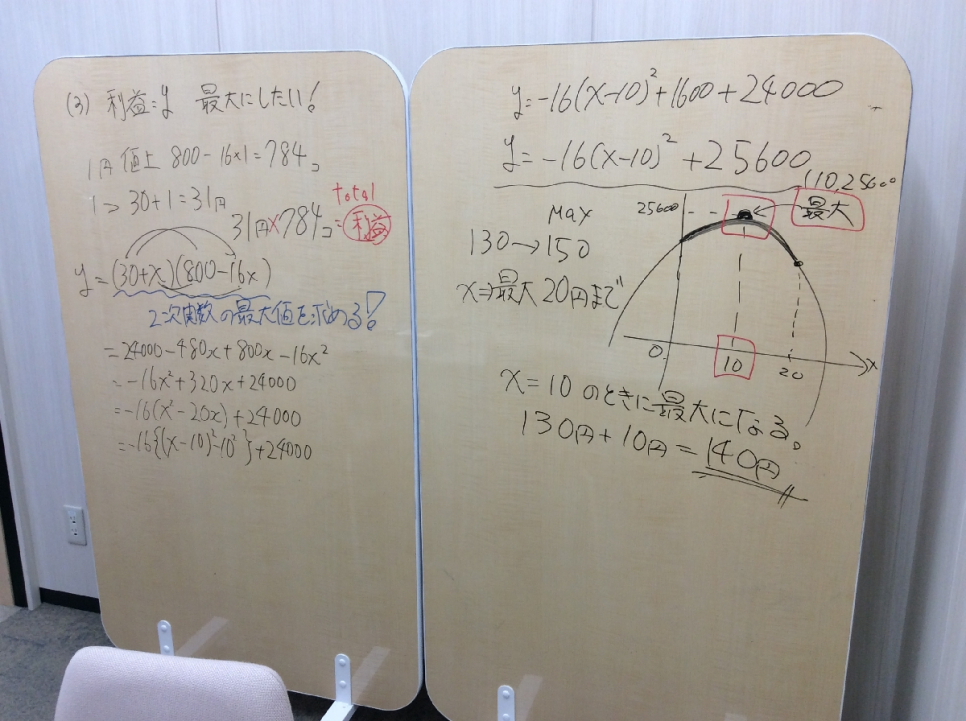 (3) 利益=y 最大にしたい!
1円値上 800-16×1=784コ
1コ 30+1=31円
total
31円×784コ=利益
y=(30+x)(800-16x)
2次関数の最大値を求める!
=24000-480x+800x-16x²
=-16x²+320x+24000
=-16(x²-20x)+24000
=-16{(x-10)²-10²}+24000
y=-16(x-10)²+1600+24000
y=-16(x-10)²+25600
(10,25600
25600
最大
MAX
130→150
x⇒最大20円まで
0
10
20
x
x=10のときに最大になる。
130円+10円=140円